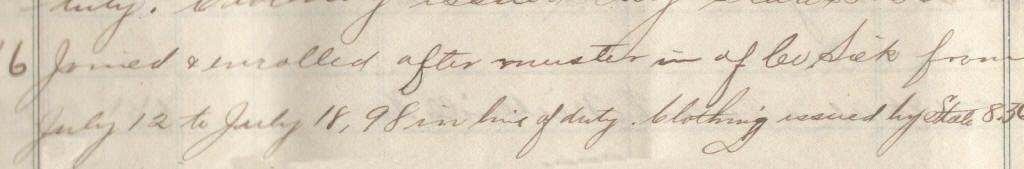 duty. Clothing issued by State
6 Joined & enrolled after muster in of Co Sick from
July 12 to July 18, 98 in line of duty. Clothing issued by State 8.36